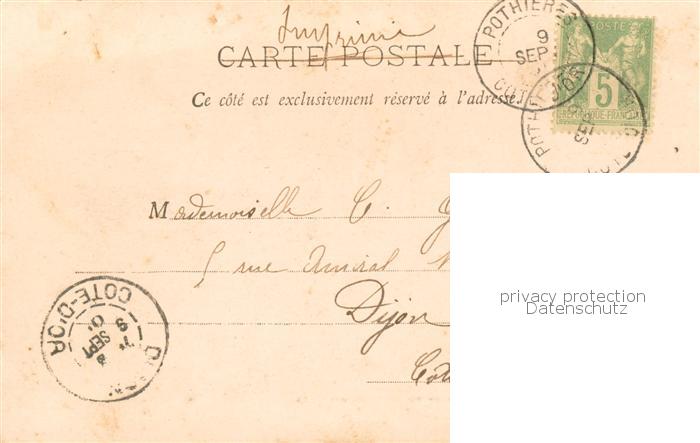 Imprimé
CARTE POSTALE
Ce côté est exclusivement réservé à l'adresse.
POTHIERES
9
SEPT
COTE D'OR
POSTE
5
REPUBLIQUE FRANCAISE
Mademoiselle C. G
5 rue Amiral
Dijon
COTE-D'OR
SEPT
privacy protection
Datenschutz